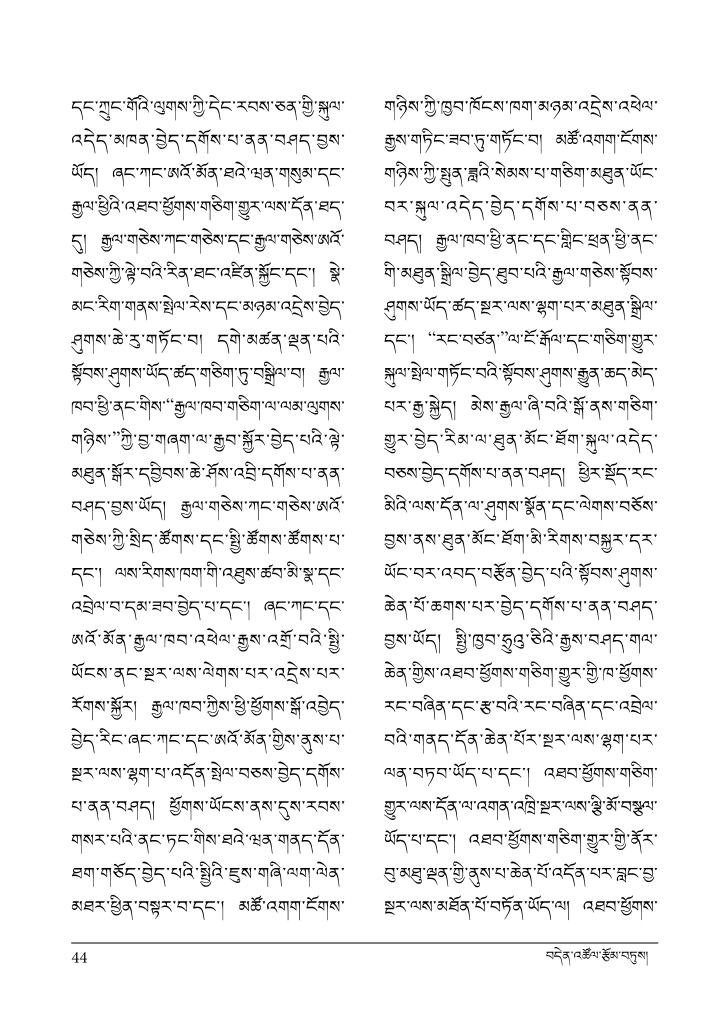 དང་ཀྲུང་གོའི་ལུགས་ཀྱི་དེང་རབས་ཅན་གྱི་སྐུལ་
འདེད་མཁན་བྱེད་དགོས་པ་ནན་བཤད་བྱས་
ཡོད། ཞང་ཀང་ཨའོ་མོན་ཐའེ་ཝན་གསུམ་དང་
རྒྱལ་ཕྱིའི་འཐབ་ཕྱོགས་གཅིག་གྱུར་ལས་དོན་ཐད་
དུ། རྒྱལ་གཅེས་ཀང་གཅེས་དང་རྒྱལ་གཅེས་ཨའོ་
གཅེས་ཀྱི་ལྟེ་བའི་རིན་ཐང་འཛིན་སྐྱོང་དང་། སྣེ་
མང་རིག་གནས་སྤེལ་རེས་དང་མཉམ་འདྲེས་བྱེད་
ཤུགས་ཆེ་རུ་གཏོང་བ། དགེ་མཚན་ལྡན་པའི་
སྟོབས་ཤུགས་ཡོད་ཚད་གཅིག་ཏུ་བསྒྲིལ་བ། རྒྱལ་
ཁབ་ཕྱི་ནང་གིས་“རྒྱལ་ཁབ་གཅིག་ལ་ལམ་ལུགས་
གཉིས་”ཀྱི་བྱ་གཞག་ལ་རྒྱབ་སྐྱོར་བྱེད་པའི་ལྟེ་
མཐུན་སྒོར་དབྱིབས་ཆེ་ཤོས་འབྲི་དགོས་པ་ནན་
བཤད་བྱས་ཡོད། རྒྱལ་གཅེས་ཀང་གཅེས་ཨའོ་
གཅེས་ཀྱི་སྲིད་ཚོགས་དང་སྤྱི་ཚོགས་ཚོགས་པ་
དང་། ལས་རིགས་ཁག་གི་འཐུས་ཚབ་མི་སྣ་དང་
འབྲེལ་བ་དམ་ཟབ་བྱེད་པ་དང་། ཞང་ཀང་དང་
ཨའོ་མོན་རྒྱལ་ཁབ་འཕེལ་རྒྱས་འགྲོ་བའི་སྤྱི་
ཡོངས་ནང་སྔར་ལས་ལེགས་པར་འདྲེས་པར་
རོགས་སྐྱོར། རྒྱལ་ཁབ་ཀྱིས་ཕྱི་ཕྱོགས་སྒོ་འབྱེད་
བྱེད་རིང་ཞང་ཀང་དང་ཨའོ་མོན་གྱིས་ནུས་པ་
སྔར་ལས་ལྷག་པ་འདོན་སྤེལ་བཅས་བྱེད་དགོས་
པ་ནན་བཤད། ཕྱོགས་ཡོངས་ནས་དུས་རབས་
གསར་པའི་ནང་ཏང་གིས་ཐའེ་ཝན་གནད་དོན་
ཐག་གཅོད་བྱེད་པའི་སྤྱིའི་ཇུས་གཞི་ལག་ལེན་
མཐར་ཕྱིན་བསྟར་བ་དང་། མཚོ་འགག་ངོགས་
གཉིས་ཀྱི་ཁྱབ་ཁོངས་ཁག་མཉམ་འདྲེས་འཕེལ་
རྒྱས་གཏིང་ཟབ་ཏུ་གཏོང་བ། མཚོ་འགག་ངོགས་
གཉིས་ཀྱི་སྤུན་ཟླའི་སེམས་པ་གཅིག་མཐུན་ཡོང་
བར་སྐུལ་འདེད་བྱེད་དགོས་པ་བཅས་ནན་
བཤད། རྒྱལ་ཁབ་ཕྱི་ནང་དང་གླིང་ཕྲན་ཕྱི་ནང་
གི་མཐུན་སྒྲིལ་བྱེད་ཐུབ་པའི་རྒྱལ་གཅེས་སྟོབས་
ཤུགས་ཡོད་ཚད་སྔར་ལས་ལྷག་པར་མཐུན་སྒྲིལ་
དང་། “རང་བཙན་”ལ་ངོ་རྒོལ་དང་གཅིག་གྱུར་
སྐུལ་སྤེལ་གཏོང་བའི་སྟོབས་ཤུགས་རྒྱུན་ཆད་མེད་
པར་རྒྱ་སྐྱེད། མེས་རྒྱལ་ཞི་བའི་སྒོ་ནས་གཅིག་
གྱུར་བྱེད་རིམ་ལ་ཐུན་མོང་ཐོག་སྐུལ་འདེད་
བཅས་བྱེད་དགོས་པ་ནན་བཤད། ཕྱིར་སྡོད་རང་
མིའི་ལས་དོན་ལ་ཤུགས་སྣོན་དང་ལེགས་བཅོས་
བྱས་ནས་ཐུན་མོང་ཐོག་མི་རིགས་བསྐྱར་དར་
ཡོང་བར་འབད་བརྩོན་བྱེད་པའི་སྟོབས་ཤུགས་
ཆེན་པོ་ཆགས་པར་བྱེད་དགོས་པ་ནན་བཤད་
བྱས་ཡོད། སྤྱི་ཁྱབ་ཧྲུའུ་ཅིའི་རྒྱས་བཤད་གལ་
ཆེན་གྱིས་འཐབ་ཕྱོགས་གཅིག་གྱུར་གྱི་ཁ་ཕྱོགས་
རང་བཞིན་དང་རྩ་བའི་རང་བཞིན་དང་འབྲེལ་
བའི་གནད་དོན་ཆེན་པོར་སྔར་ལས་ལྷག་པར་
ལན་བཏབ་ཡོད་པ་དང་། འཐབ་ཕྱོགས་གཅིག་
གྱུར་ལས་དོན་ལ་འགན་འཁྲི་སྔར་ལས་ལྕི་མོ་བསྩལ་
ཡོད་པ་དང་། འཐབ་ཕྱོགས་གཅིག་གྱུར་གྱི་ནོར་
བུ་མཐུ་ལྡན་གྱི་ནུས་པ་ཆེན་པོ་འདོན་པར་བླང་བྱ་
སྔར་ལས་མཐོན་པོ་བཏོན་ཡོད་ལ། འཐབ་ཕྱོགས་
44
བདེན་འཚོལ་རྩོམ་བཏུས།